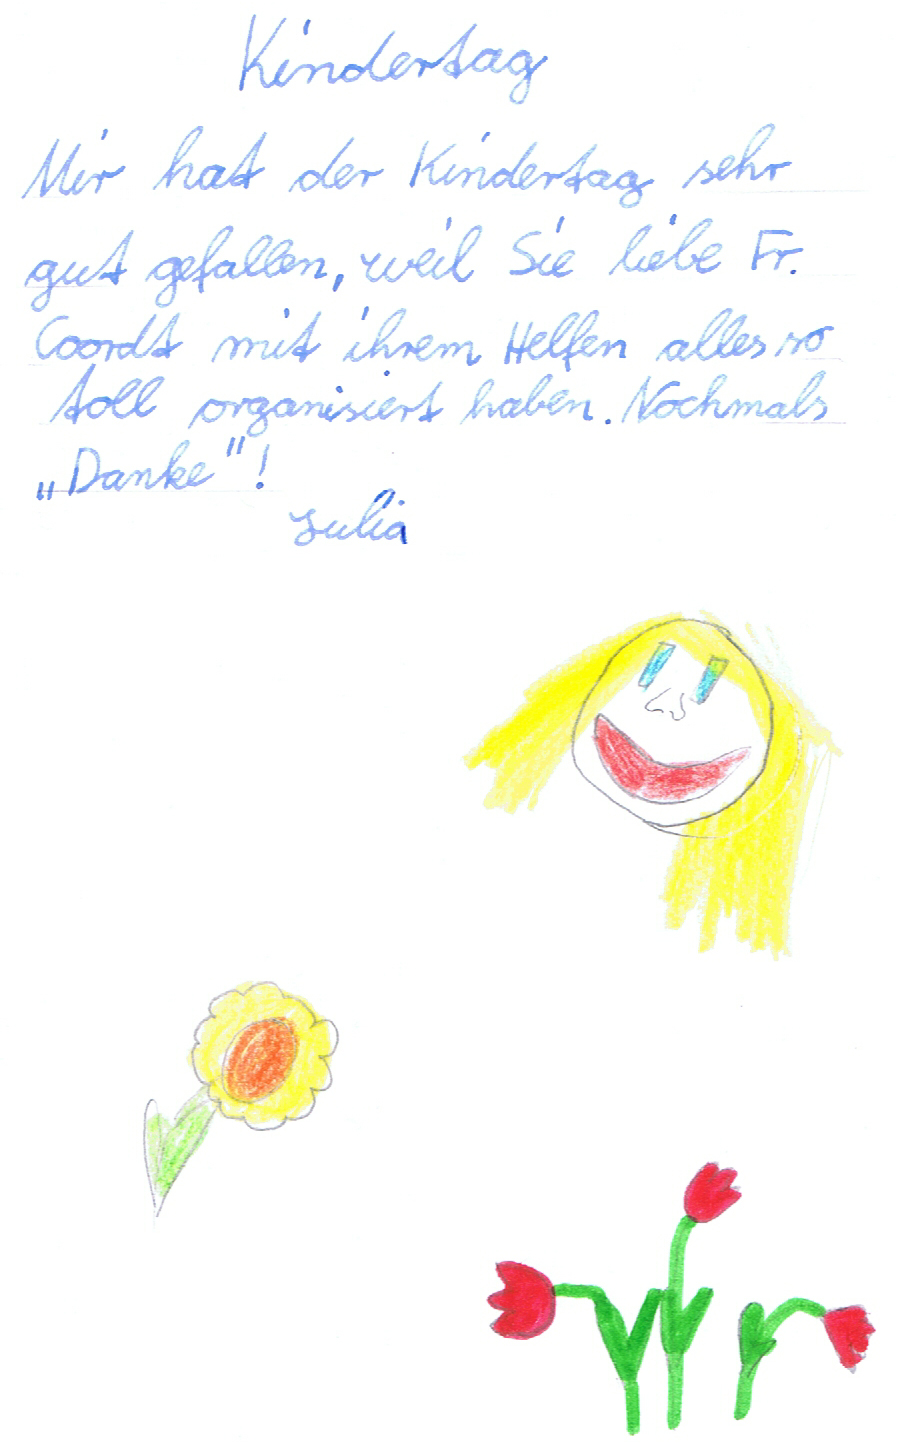 Kindertag
Mir hat der Kindertag sehr
gut gefallen, weil Sie liebe Fr.
Coordt mit ihrem Helfen alles so
toll organisiert haben. Nochmals
„Danke"!
Julia